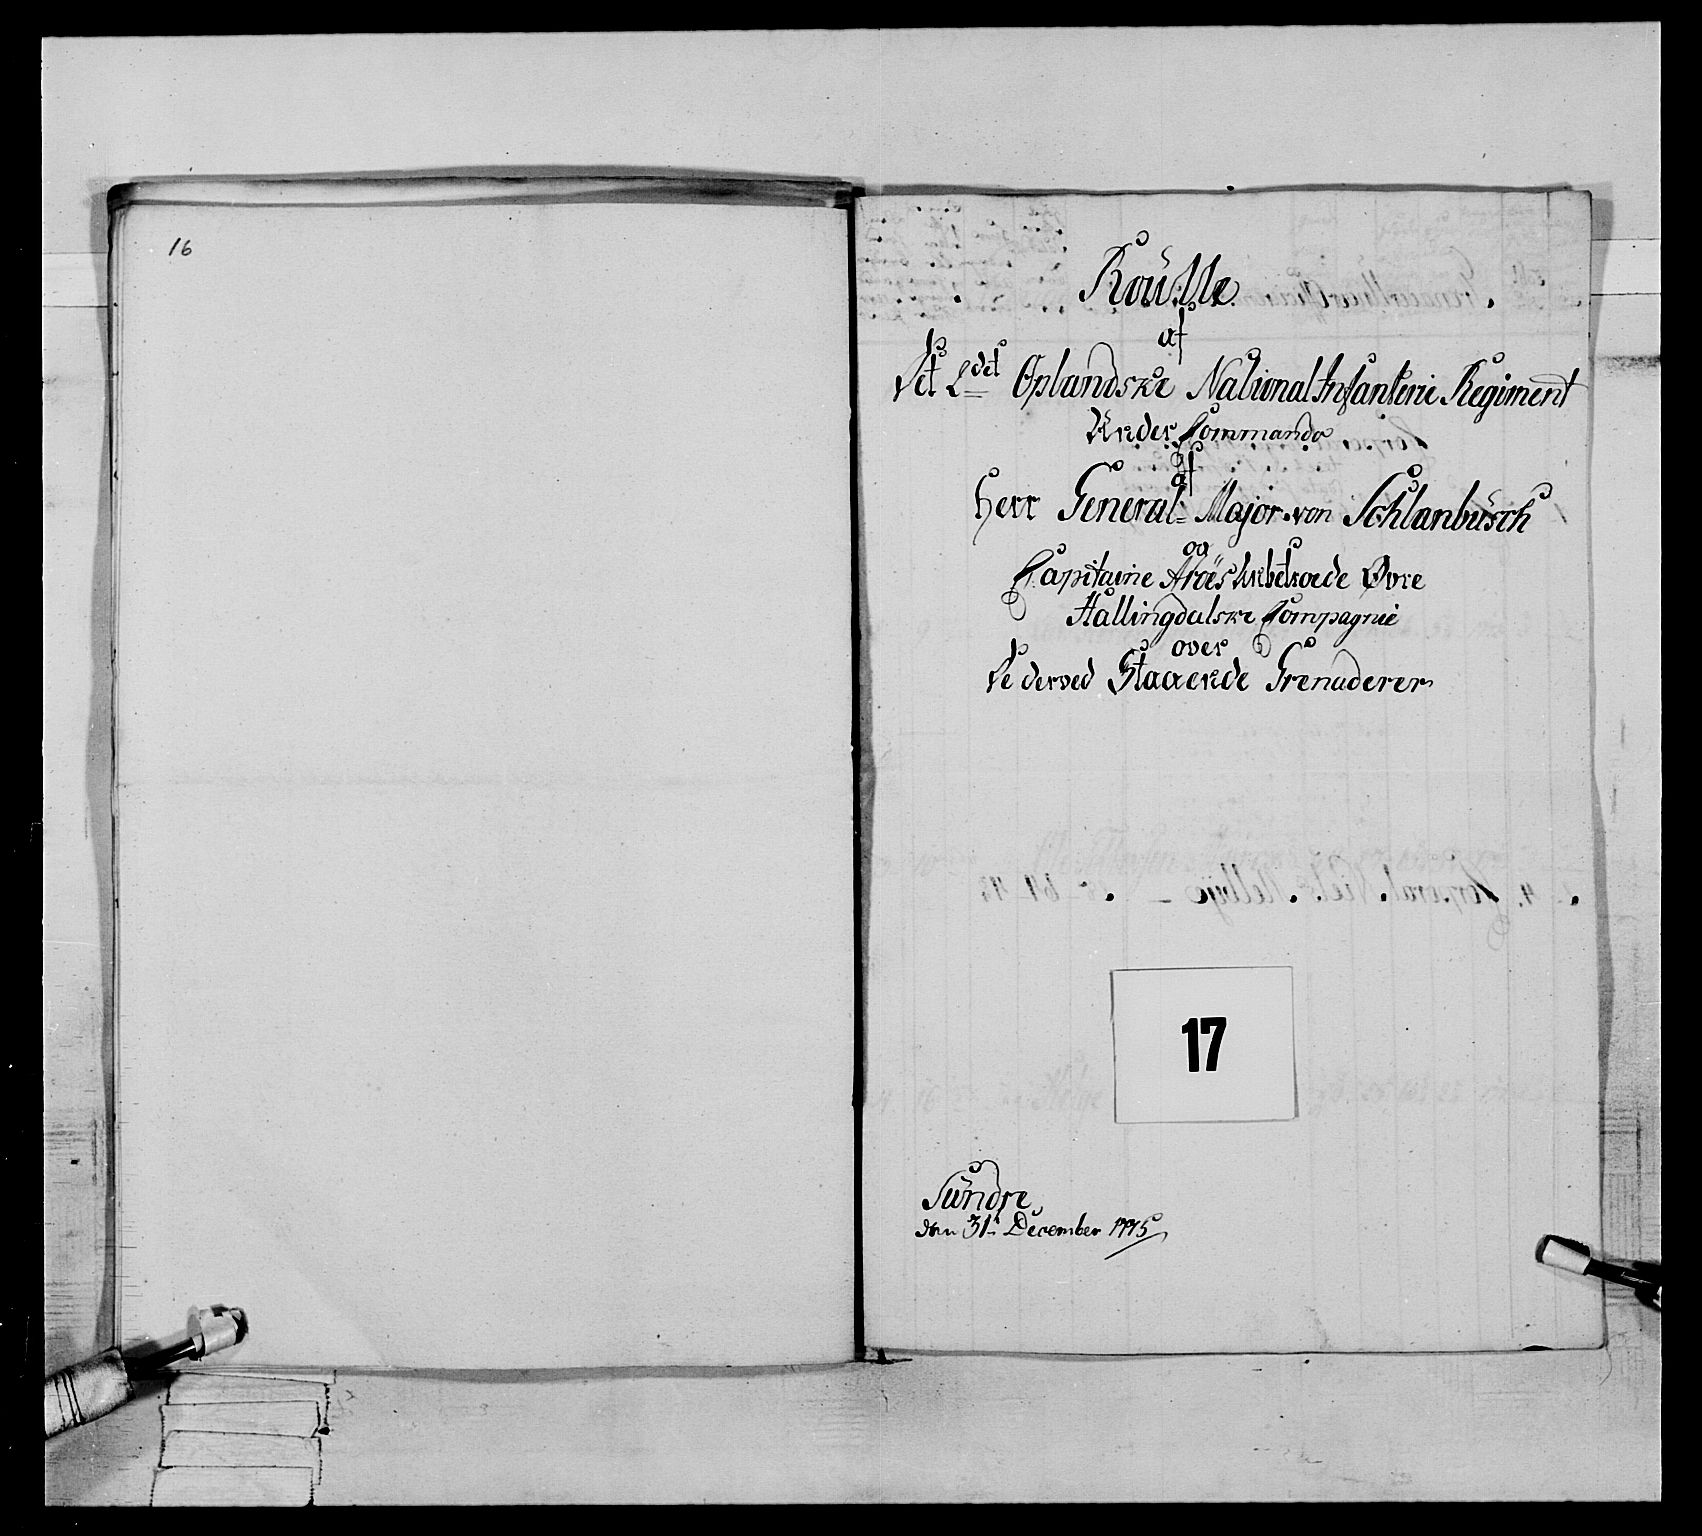 16
Roülle
af
Det 2det Oplandske National Infanterie Regiment
Under Commando
af
Herr General-Major von Schlanbüsch
og
Capitaine Aröes Anbetroede Øvre
Hallingdalske Compagnie
over
De derved Staaende Grenaderer
17
Sündre
den 31t December 1775